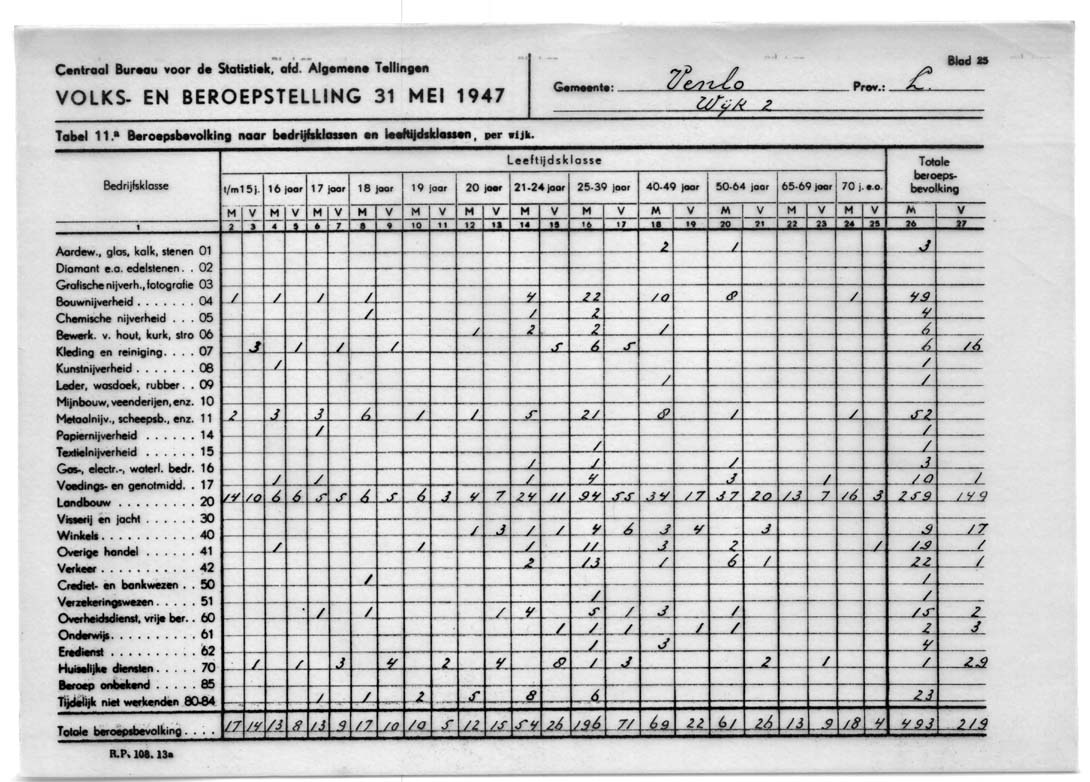 Blad 25
Centraal Bureau voor de Statistiek, afd. Algemene Tellingen
VOLKS- EN BEROEPSTELLING 31 MEI 1947
Gemeente: Venlo Prov.: L.
Wijk 2
Tabel 11.ª Beroepsbevolking naar bedrijfsklassen en leeftijdsklassen, per wijk.
Bedrijfsklasse Leeftijdsklasse Totale beroeps-bevolking
t/m 15 j. 16 jaar 17 jaar 18 jaar 19 jaar 20 jaar 21-24 jaar 25-39 jaar 40-49 jaar 50-64 jaar 65-69 jaar 70 j. e.o.
M V M V M V M V M V M V M V M V M V M V M V M V M V
1 2 3 4 5 6 7 8 9 10 11 12 13 14 15 16 17 18 19 20 21 22 23 24 25 26 27
Aardew., glas, kalk, stenen 01 2 1 3
Diamant e.a. edelstenen . . 02
Grafische nijverh., fotografie 03
Bouwnijverheid . . . . . . . 04 1 1 1 1 4 22 10 8 1 49
Chemische nijverheid . . . 05 1 1 2 4
Bewerk. v. hout, kurk, stro 06 1 2 2 1 6
Kleding en reiniging. . . . 07 3 1 1 1 5 6 5 6 16
Kunstnijverheid . . . . . . . 08 1 1
Leder, wasdoek, rubber . . 09 1 1
Mijnbouw, veenderijen, enz. 10
Metaalnijv., scheepsb., enz. 11 2 3 3 6 1 1 5 21 8 1 1 52
Papiernijverheid . . . . . . 14 1 1
Textielnijverheid . . . . . . 15 1 1
Gas-, electr.-, waterl. bedr. 16 1 1 1 3
Voedings- en genotmidd. . . 17 1 1 1 4 3 1 10 1
Landbouw . . . . . . . . . . 20 14 10 6 6 5 5 6 5 6 3 4 7 24 11 94 55 34 17 37 20 13 7 16 3 259 149
Visserij en jacht . . . . . . 30
Winkels . . . . . . . . . . . 40 1 3 1 1 4 6 3 4 3 9 17
Overige handel . . . . . . . 41 1 1 1 11 3 2 1 19 1
Verkeer . . . . . . . . . . . 42 2 13 1 6 1 22 1
Crediet- en bankwezen . . 50 1 1
Verzekeringswezen . . . . . 51 1 1
Overheidsdienst, vrije ber. . 60 1 1 1 4 5 1 3 1 15 2
Onderwijs . . . . . . . . . . 61 1 1 1 1 1 2 3
Eredienst . . . . . . . . . . 62 1 3 4
Huiselijke diensten . . . . . 70 1 1 3 4 2 4 8 1 3 2 1 1 29
Beroep onbekend . . . . . 85
Tijdelijk niet werkenden 80-84 1 1 2 5 8 6 23
Totale beroepsbevolking . . . . 17 14 13 8 13 9 17 10 10 5 12 15 54 26 196 71 69 22 61 26 13 9 18 4 493 219
R.P. 108. 13a